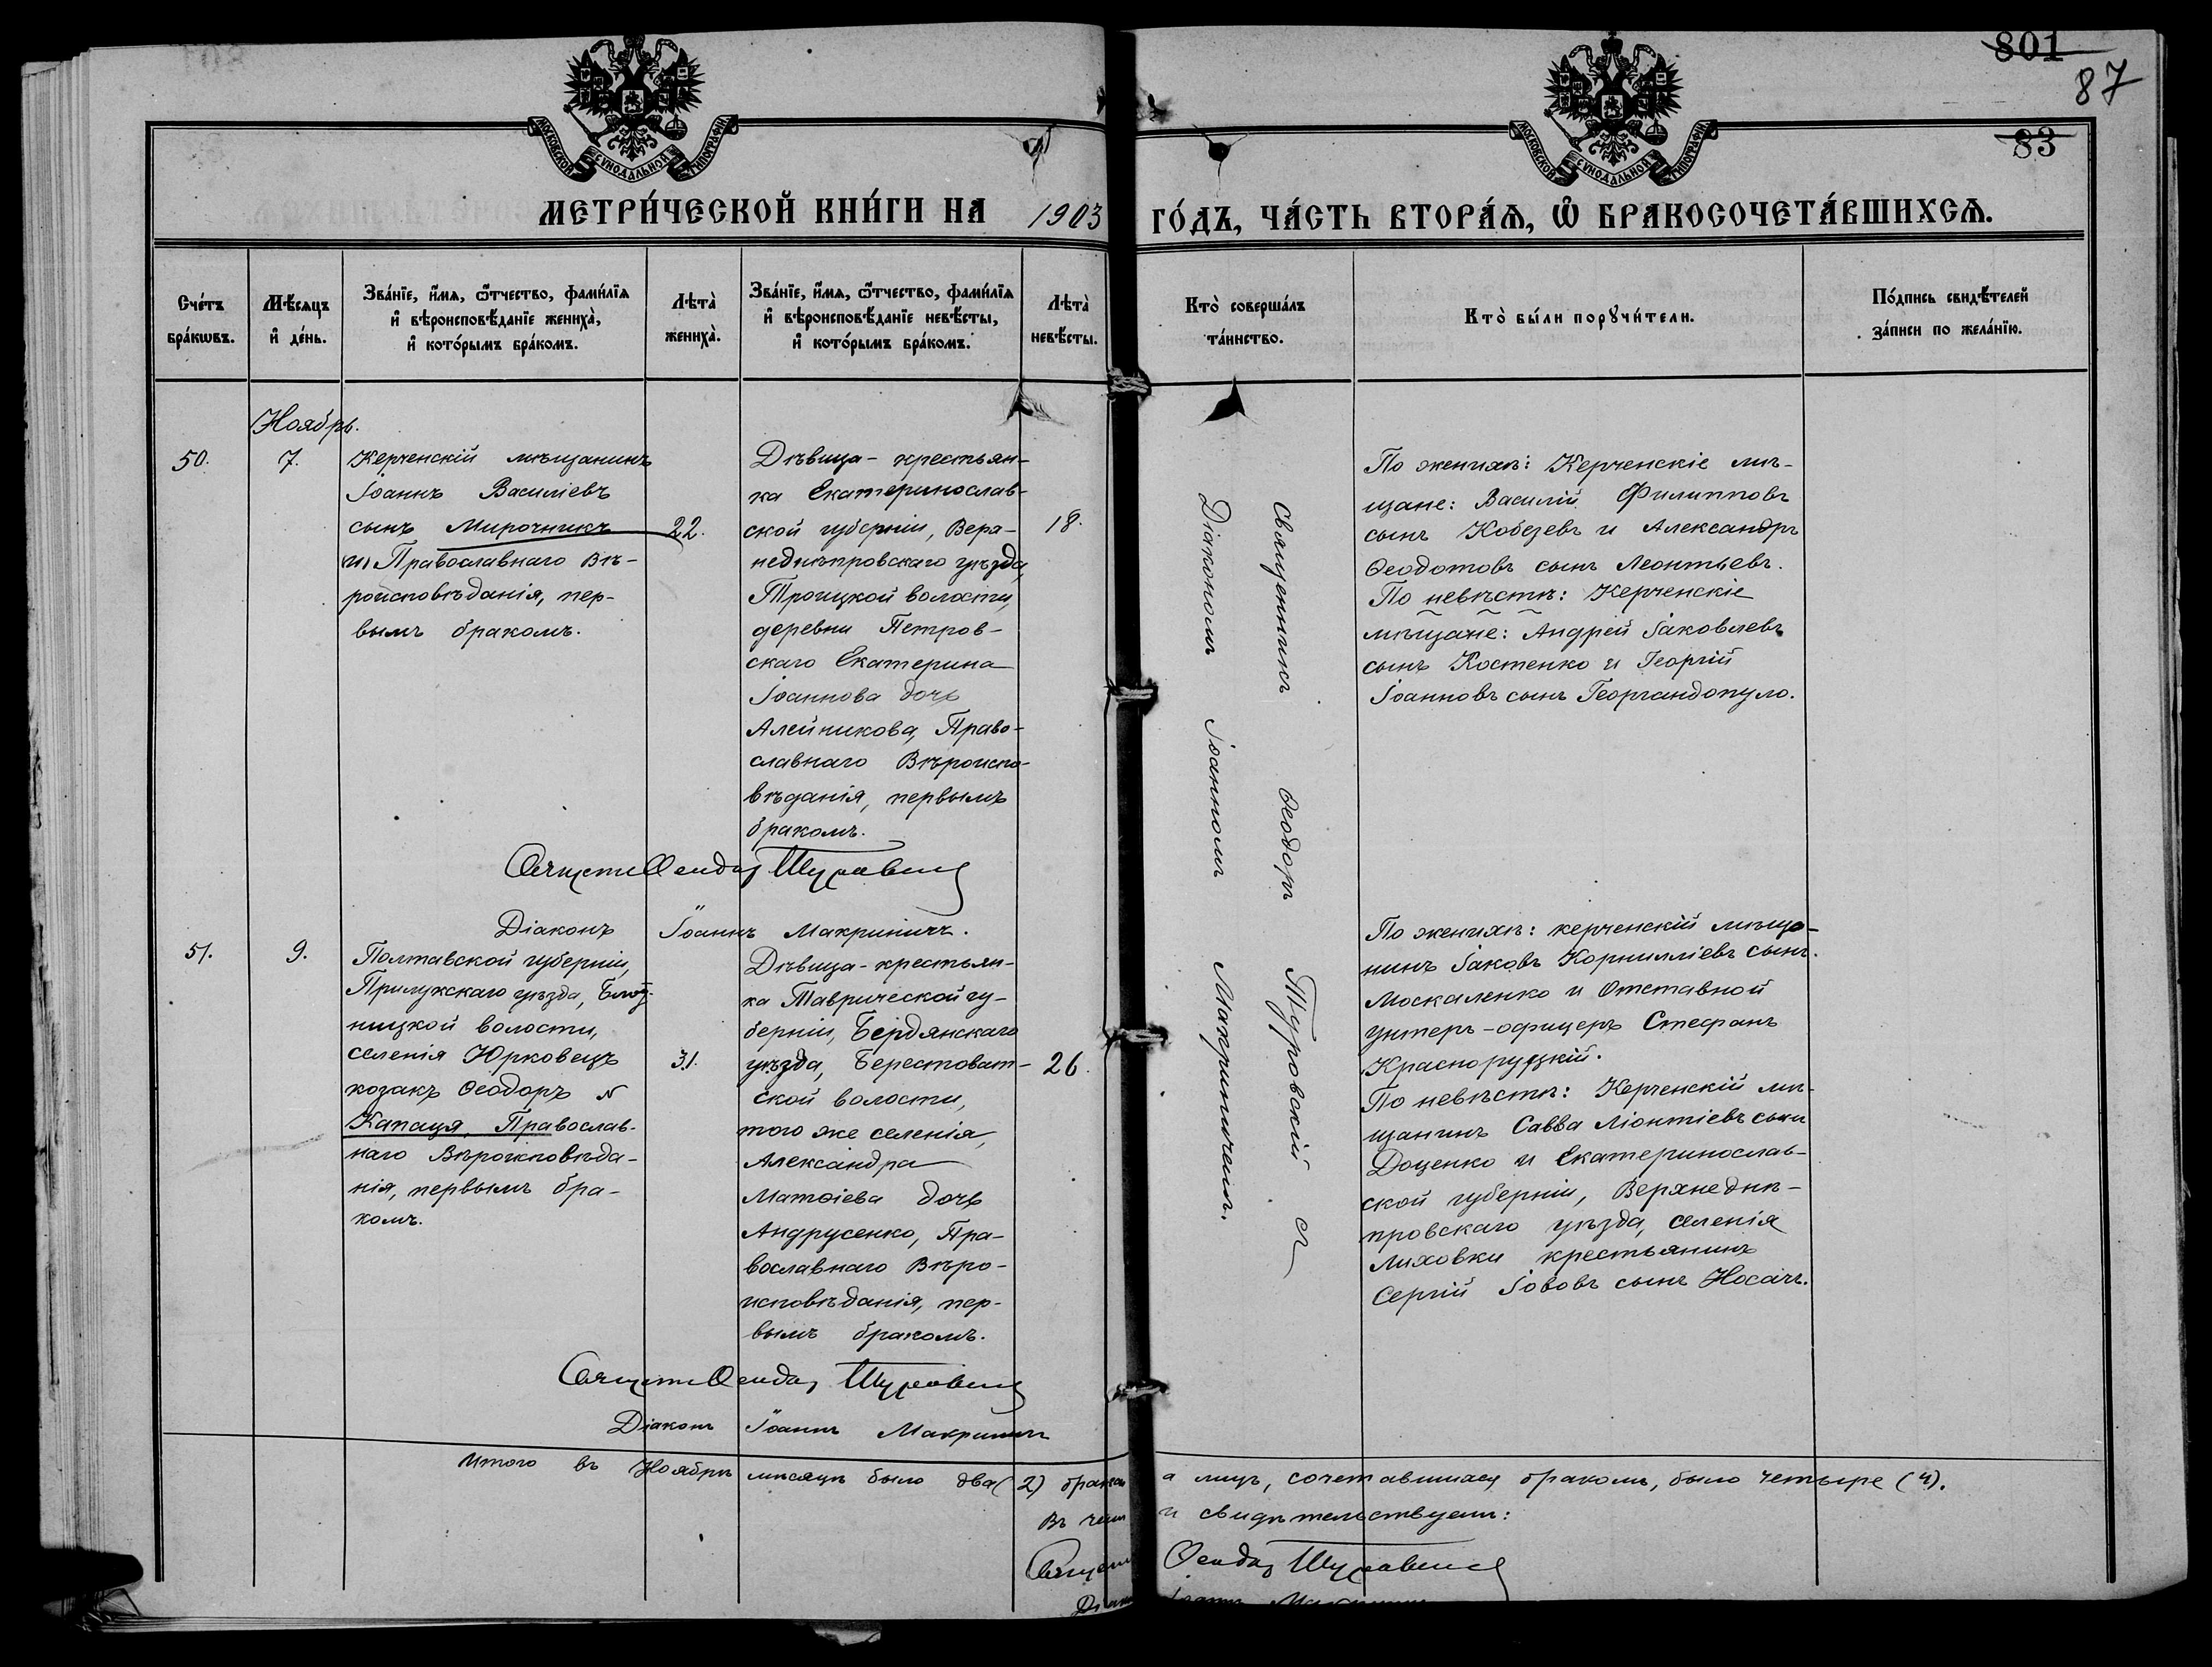 801
87
83
МОСКОВСКОЙ СѴНОДАЛЬНОЙ ТИПОГРАФІИ
МОСКОВСКОЙ СѴНОДАЛЬНОЙ ТИПОГРАФІИ
МЕТРИ́ЧЕСКОЙ КНИ́ГИ НА 1903 ГО́ДЪ, ЧА́СТЬ ВТОРА́Ѧ, Ѽ БРАКОСОЧЕТА́ВШИХСѦ.
Сче́тъ бра́кωвъ.
Мѣ́сяцъ и҆ де́нь.
Зва́нїе, и҆́мѧ, ѻ҆́тчество, фами́лїѧ
и҆ вѣроисповѣ́данїе жениха̀,
и҆ кото́рымъ бра́комъ.
Лѣта̀ жениха̀.
Зва́нїе, и҆́мѧ, ѻ҆́тчество, фами́лїѧ
и҆ вѣроисповѣ́данїе невѣ́сты,
и҆ кото́рымъ бра́комъ.
Лѣта̀ невѣ́сты.
Кто̀ соверша́лъ та́инство.
Кто̀ бы́ли порꙋчи́тели.
По́дпись свидѣ́телей за́писи по жела́нїю.
Ноябрь.
50.
7.
Керченскій мѣщанинъ
Іоаннъ Василіевъ
сынъ Мирочникъ
Православнаго Вѣ-
роисповѣданія, пер-
вымъ бракомъ.
22.
Дѣвица - крестьян-
ка Екатеринослав-
ской губерніи, Верх-
неднѣпровскаго уѣзда,
Троицкой волости,
деревни Петров-
скаго Екатерина
Іоаннова дочь
Алейникова, Право-
славнаго Вѣроиспо-
вѣданія, первымъ
бракомъ.
18.
Священникъ Ѳеодоръ Туровскій съ
Діакономъ Іоанномъ Макриничемъ.
По женихѣ: Керченскіе мѣ-
щане: Василій Филипповъ
сынъ Кобезевъ и Александръ
Ѳеодотовъ сынъ Леонтьевъ.
По невѣстѣ: Керченскіе
мѣщане: Андрей Іаковлевъ
сынъ Костенко и Георгій
Іоанновъ сынъ Георгандопуло.
Діаконъ Іоаннъ Макриничъ.
51.
9.
Полтавской губерніи,
Прилукскаго уѣзда,
ницкой волости,
селенія Юрковецъ
козакъ Ѳеодоръ
Капаця, Православ-
наго Вѣроисповѣда-
нія, первымъ бра-
комъ.
31.
Дѣвица - крестьян-
ка Таврической гу-
берніи, Бердянскаго
уѣзда, Берестоват-
ской волости,
того же селенія,
Александра
Матѳіева дочь
Андрусенко, Пра-
вославнаго Вѣро-
исповѣданія, пер-
вымъ бракомъ.
26.
По женихѣ: керченскій мѣща-
нинъ Іаковъ Корнилліевъ сынъ
Москаленко и Отставной
унтеръ-офицеръ Стефанъ
Краснорудкій.
По невѣстѣ: Керченскій мѣ-
щанинъ Савва Ліонтіевъ сынъ
Доценко и Екатеринослав-
ской губерніи, Верхнеднѣ-
провскаго уѣзда, селенія
Лиховки крестьянинъ
Сергій Іововъ сынъ Носачъ.
Діаконъ Іоаннъ Макриничъ
Итого въ Ноябрѣ мѣсяцѣ было два (2) брака а лицъ, сочетавшихся бракомъ, было четыре (4).
Въ чемъ и свидѣтельствуемъ: